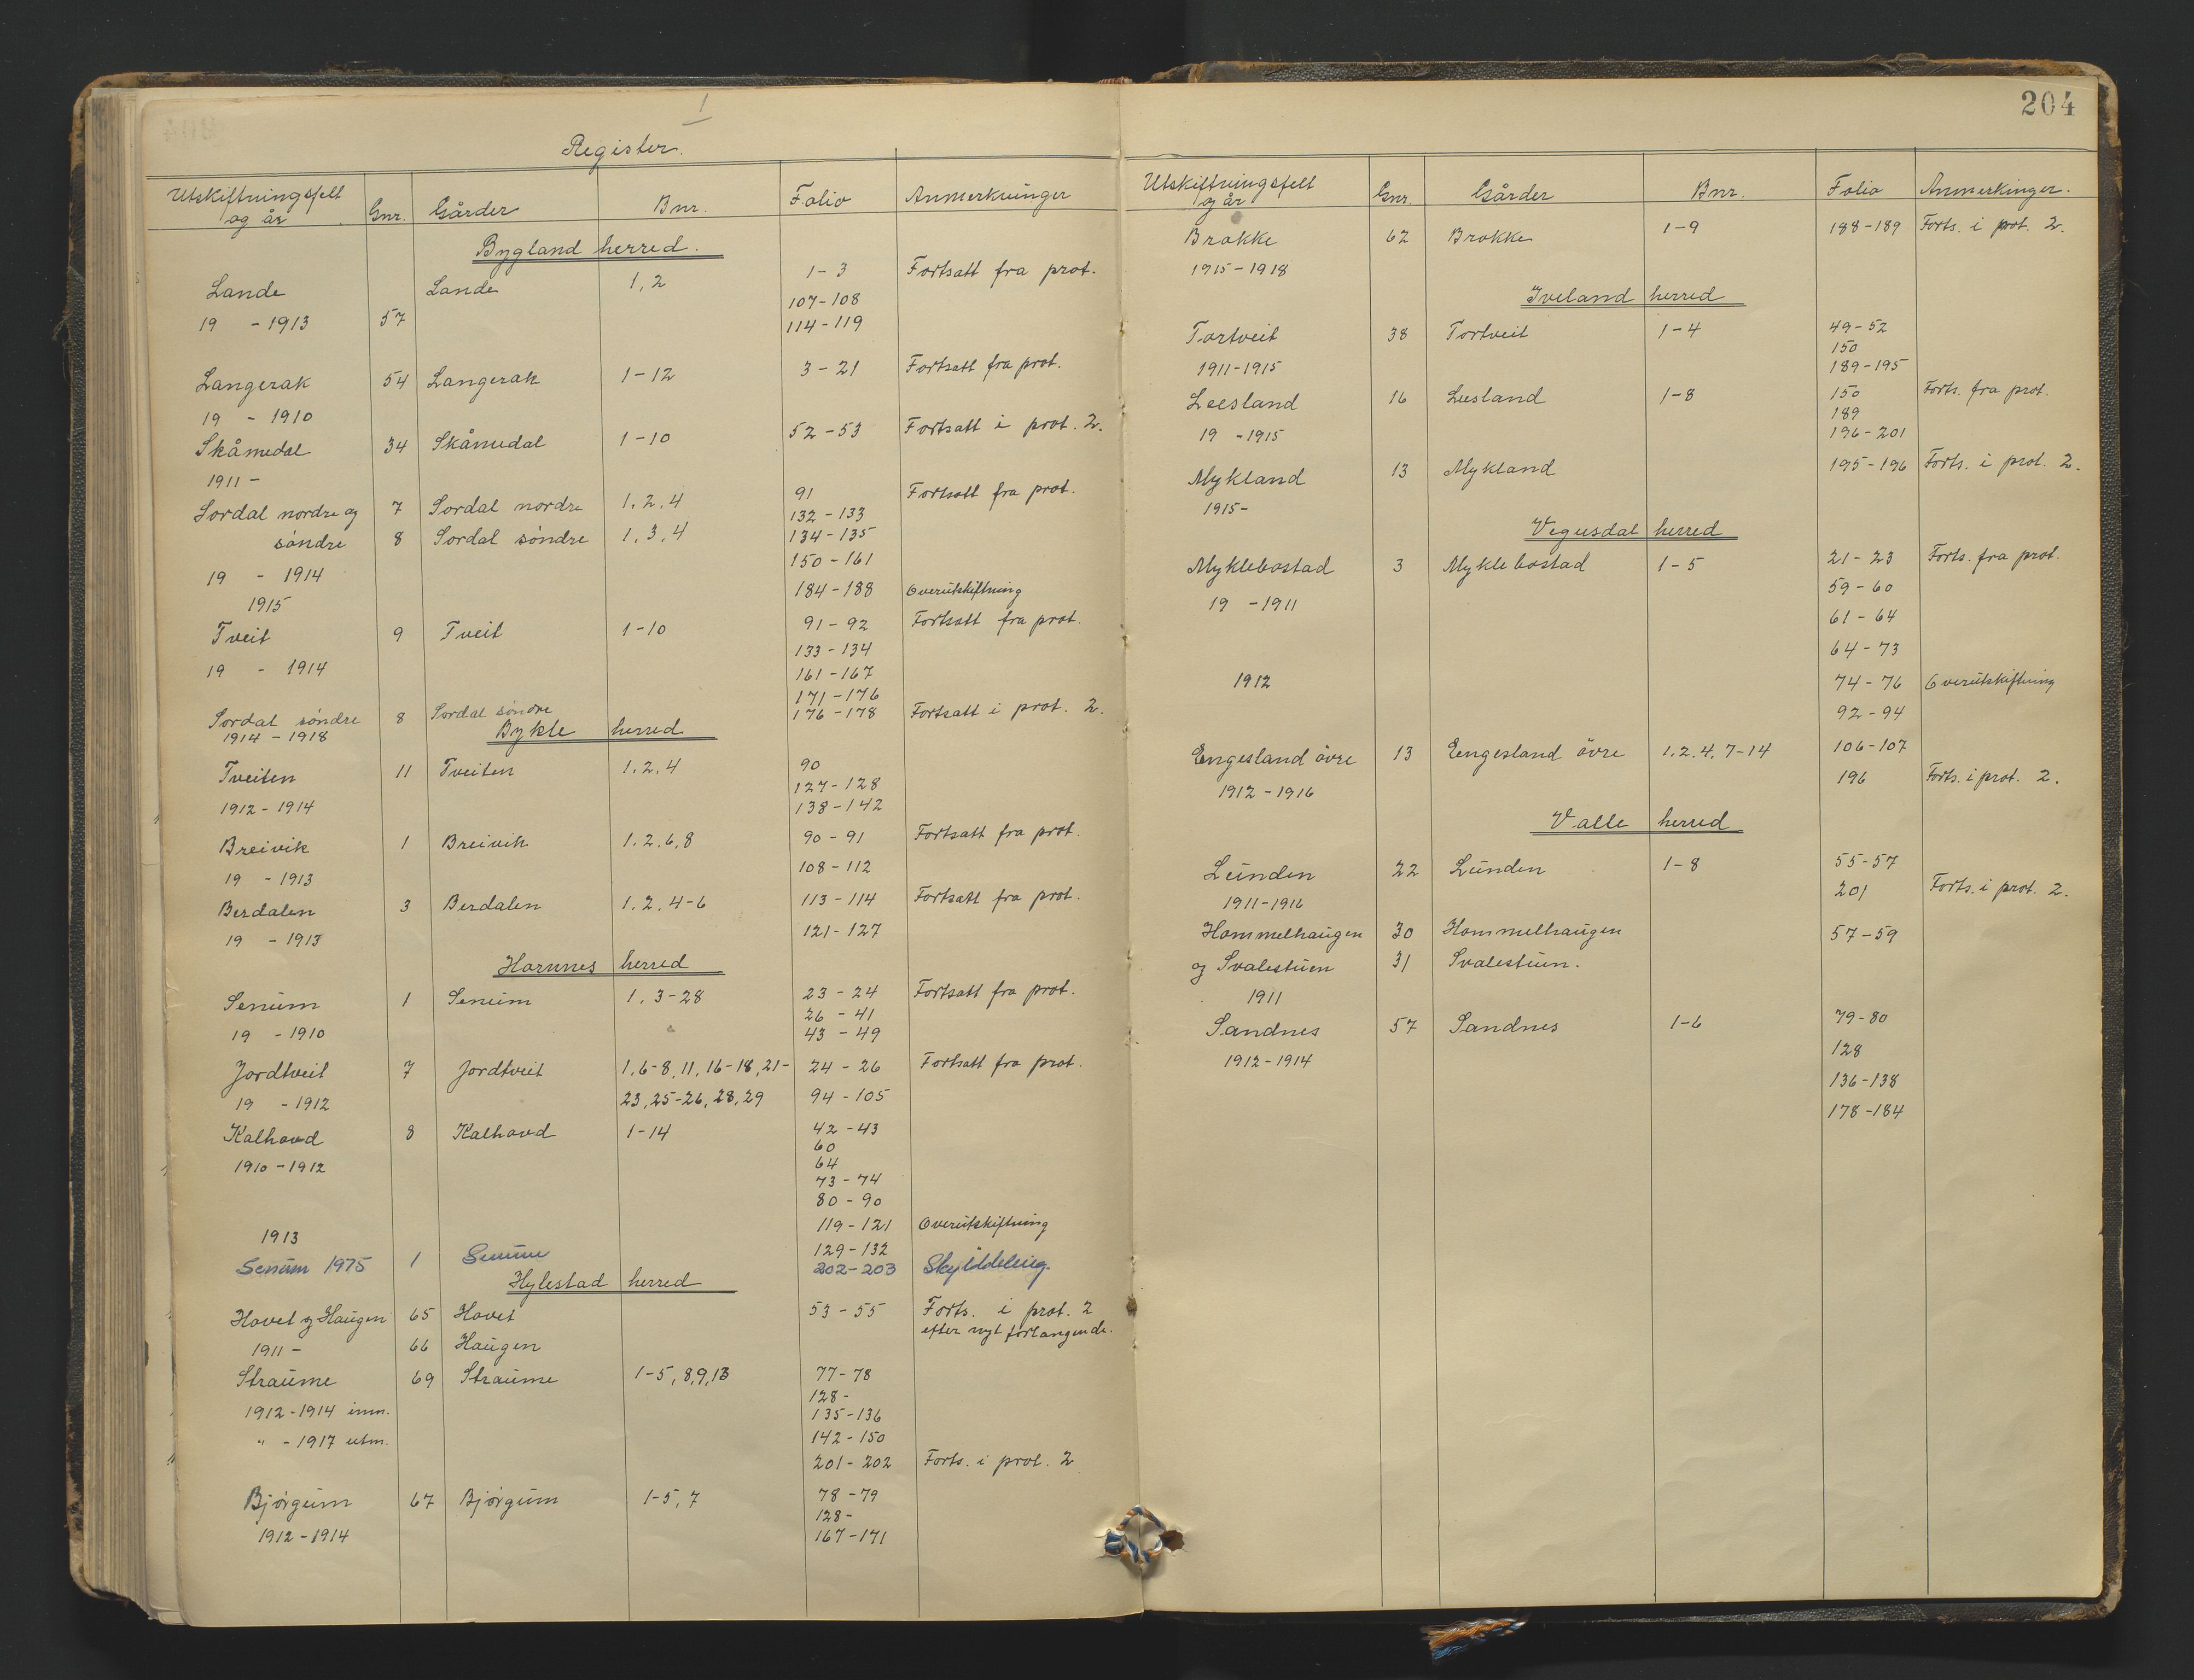 1
Register.
Utskiftningsfelt og år Gnr. Gårder Bnr. Folio Anmerkninger
Bygland herred.
Lande Lande 1, 2 1-3 Fortsatt fra prot.
107-108
19 - 1913 57 114-119
Langerak 54 Langerak 1-12 3-21 Fortsatt fra prot.
19 - 1910
Skåmedal 34 Skåmedal 1-10 52-53 Fortsatt i prot. 2.
1911 -
Sordal nordre og 7 Sordal nordre 1, 2, 4 91 Fortsatt fra prot.
132-133
söndre 8 Sordal söndre 1, 3, 4 134-135
19 - 1914 150-161
1915 184-188 Overutskiftning
Tveit 9 Tveit 1-10 91-92 Fortsatt fra prot.
133-134
19 - 1914 161-167
171-176
Sordal söndre 8 Sordal söndre 176-178 Fortsatt i prot. 2.
1914-1918
Bykle herred
Tveiten 11 Tveiten 1, 2, 4 90
127-128
1912-1914 138-142
Breivik 1 Breivik 1, 2, 6, 8 90-91 Fortsatt fra prot.
19 - 1913 108-112
Berdalen 3 Berdalen 1, 2, 4-6 113-114 Fortsatt fra prot.
19 - 1913 121-127
Hornnes herred
Senum 1 Senum 1, 3-28 23-24 Fortsatt fra prot.
26-41
19 - 1910 43-49
Jordtveit 7 Jordtveit 1, 6-8, 11, 16-18, 21- 24-26 Fortsatt fra prot.
19 - 1912 23, 25-26, 28, 29 94-105
Kalhovd 8 Kalhovd 1-14 42-43
60
1910-1912 64
73-74
80-90
119-121 Overutskiftning
1913 129-132
Senum 1975 1 Senum 202-203 Skylddeling.
Hylestad herred
Hovet og Haugen 65 Hovet 53-55 Forts. i prot. 2
efter nyt forlangende.
1911 - 66 Haugen
Straume 69 Straume 1-5, 8, 9, 13 77-78
128-
1912-1914 inm. 135-136
" - 1917 utm. 142-150
201-202 Forts. i prot. 2
Bjørgum 67 Bjørgum 1-5, 7 78-79
128-
1912-1914 167-171
204
Utskiftningsfelt og år Gnr. Gårder Bnr. Folio Anmerkinger.
Brokke 62 Brokke 1-9 188-189 Forts. i prot. 2.
1915-1918
Iveland herred
Tortveit 38 Tortveit 1-4 49-52
150
1911-1915 189-195
Leesland 16 Leesland 1-8 150 Forts. fra prot.
189
19 - 1915 196-201
Mykland 13 Mykland 195-196 Forts. i prot. 2.
1915-
Vegusdal herred
Myklebostad 3 Myklebostad 1-5 21-23 Forts. fra prot.
59-60
19 - 1911 61-64
64-73
1912 74-76 Overutskiftning
92-94
Engesland övre 13 Eengesland övre 1, 2, 4, 7-14 106-107
1912-1916 196 Forts. i prot. 2.
Valle herred
Lunden 22 Lunden 1-8 55-57
1911-1916 201 Forts. i prot. 2.
Hommelhaugen 30 Hommelhaugen 57-59
og Svalestuen 31 Svalestuen.
1911
Sandnes 57 Sandnes 1-6 79-80
1912-1914 128
136-138
178-184